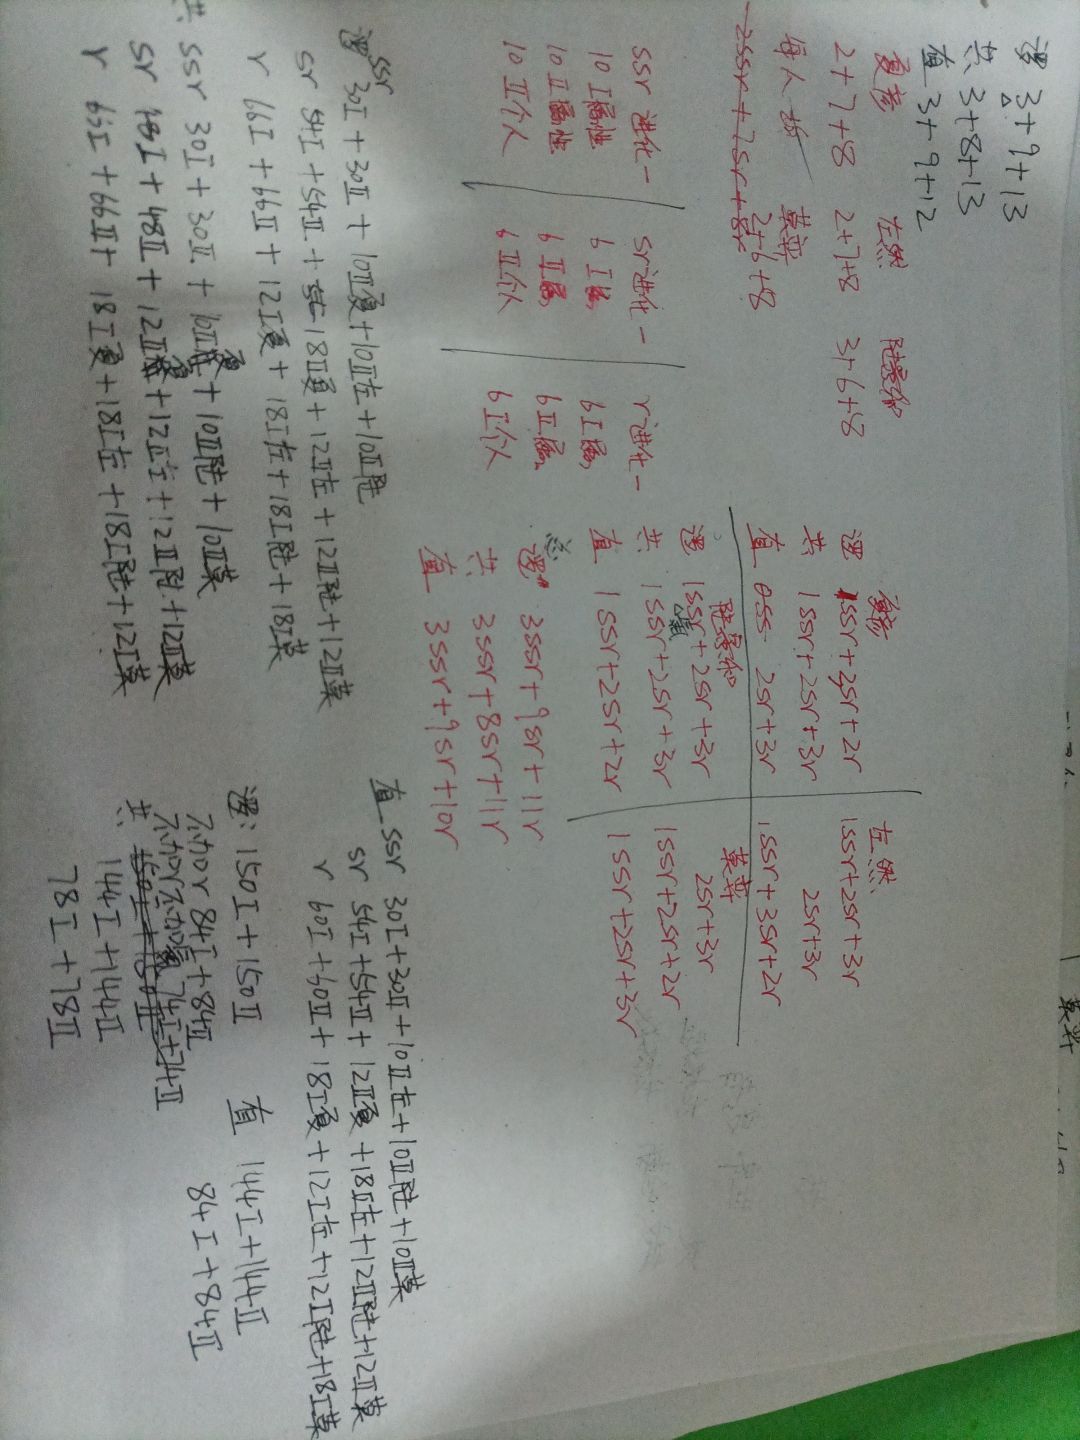 逻 3+9+13
共 3+8+13
直 3+9+12
夏彦 左然 陆景和
2+7+8 2+7+8 3+6+8
每人拆 莫弈
2ssr+7sr+8r 2+6+8
ssr进化一 sr进化一 r进化一
10 I属性 6 I属 6 I属
10 II属性 6 II属 6 II属
10 II个人 6 II个人 6 I个人
夏彦 左然
逻 1ssr+2sr+2r 1ssr+2sr+3r
共 1ssr+2sr+3r 2sr+3r
直 0ss 2sr+3r 1ssr+3sr+2r
陆景和 莫弈
逻 1ssr+2sr+3r 2sr+3r
共 1ssr+2sr+3r 1ssr+2sr+2r
直 1ssr+2sr+2r 1ssr+2sr+3r
总
逻 3ssr+9sr+11r
共 3ssr+8sr+11r
直 3ssr+9sr+10r
逻 ssr 30I+30II+10II夏+10II左+10II陆
sr 54I+54II+18II夏+12II左+12II陆+12II莫
r 66I+66II+12I夏+18I左+18I陆+18I莫
共 ssr 30I+30II+10II夏+10II陆+10II莫
sr 48I+48II+12II夏+12II左+12II陆+12II莫
r 66I+66II+18I夏+18I左+18I陆+12I莫
直 ssr 30I+30II+10II左+10II陆+10II莫
sr 54I+54II+12II夏+18II左+12II陆+12II莫
r 60I+60II+18I夏+12I左+12I陆+18I莫
逻: 150I+150II 直 144I+144II
不加r 84I+84II 84I+84II
74I+74II
共: 150I+150II
144I+144II
78I+78II
莫弈